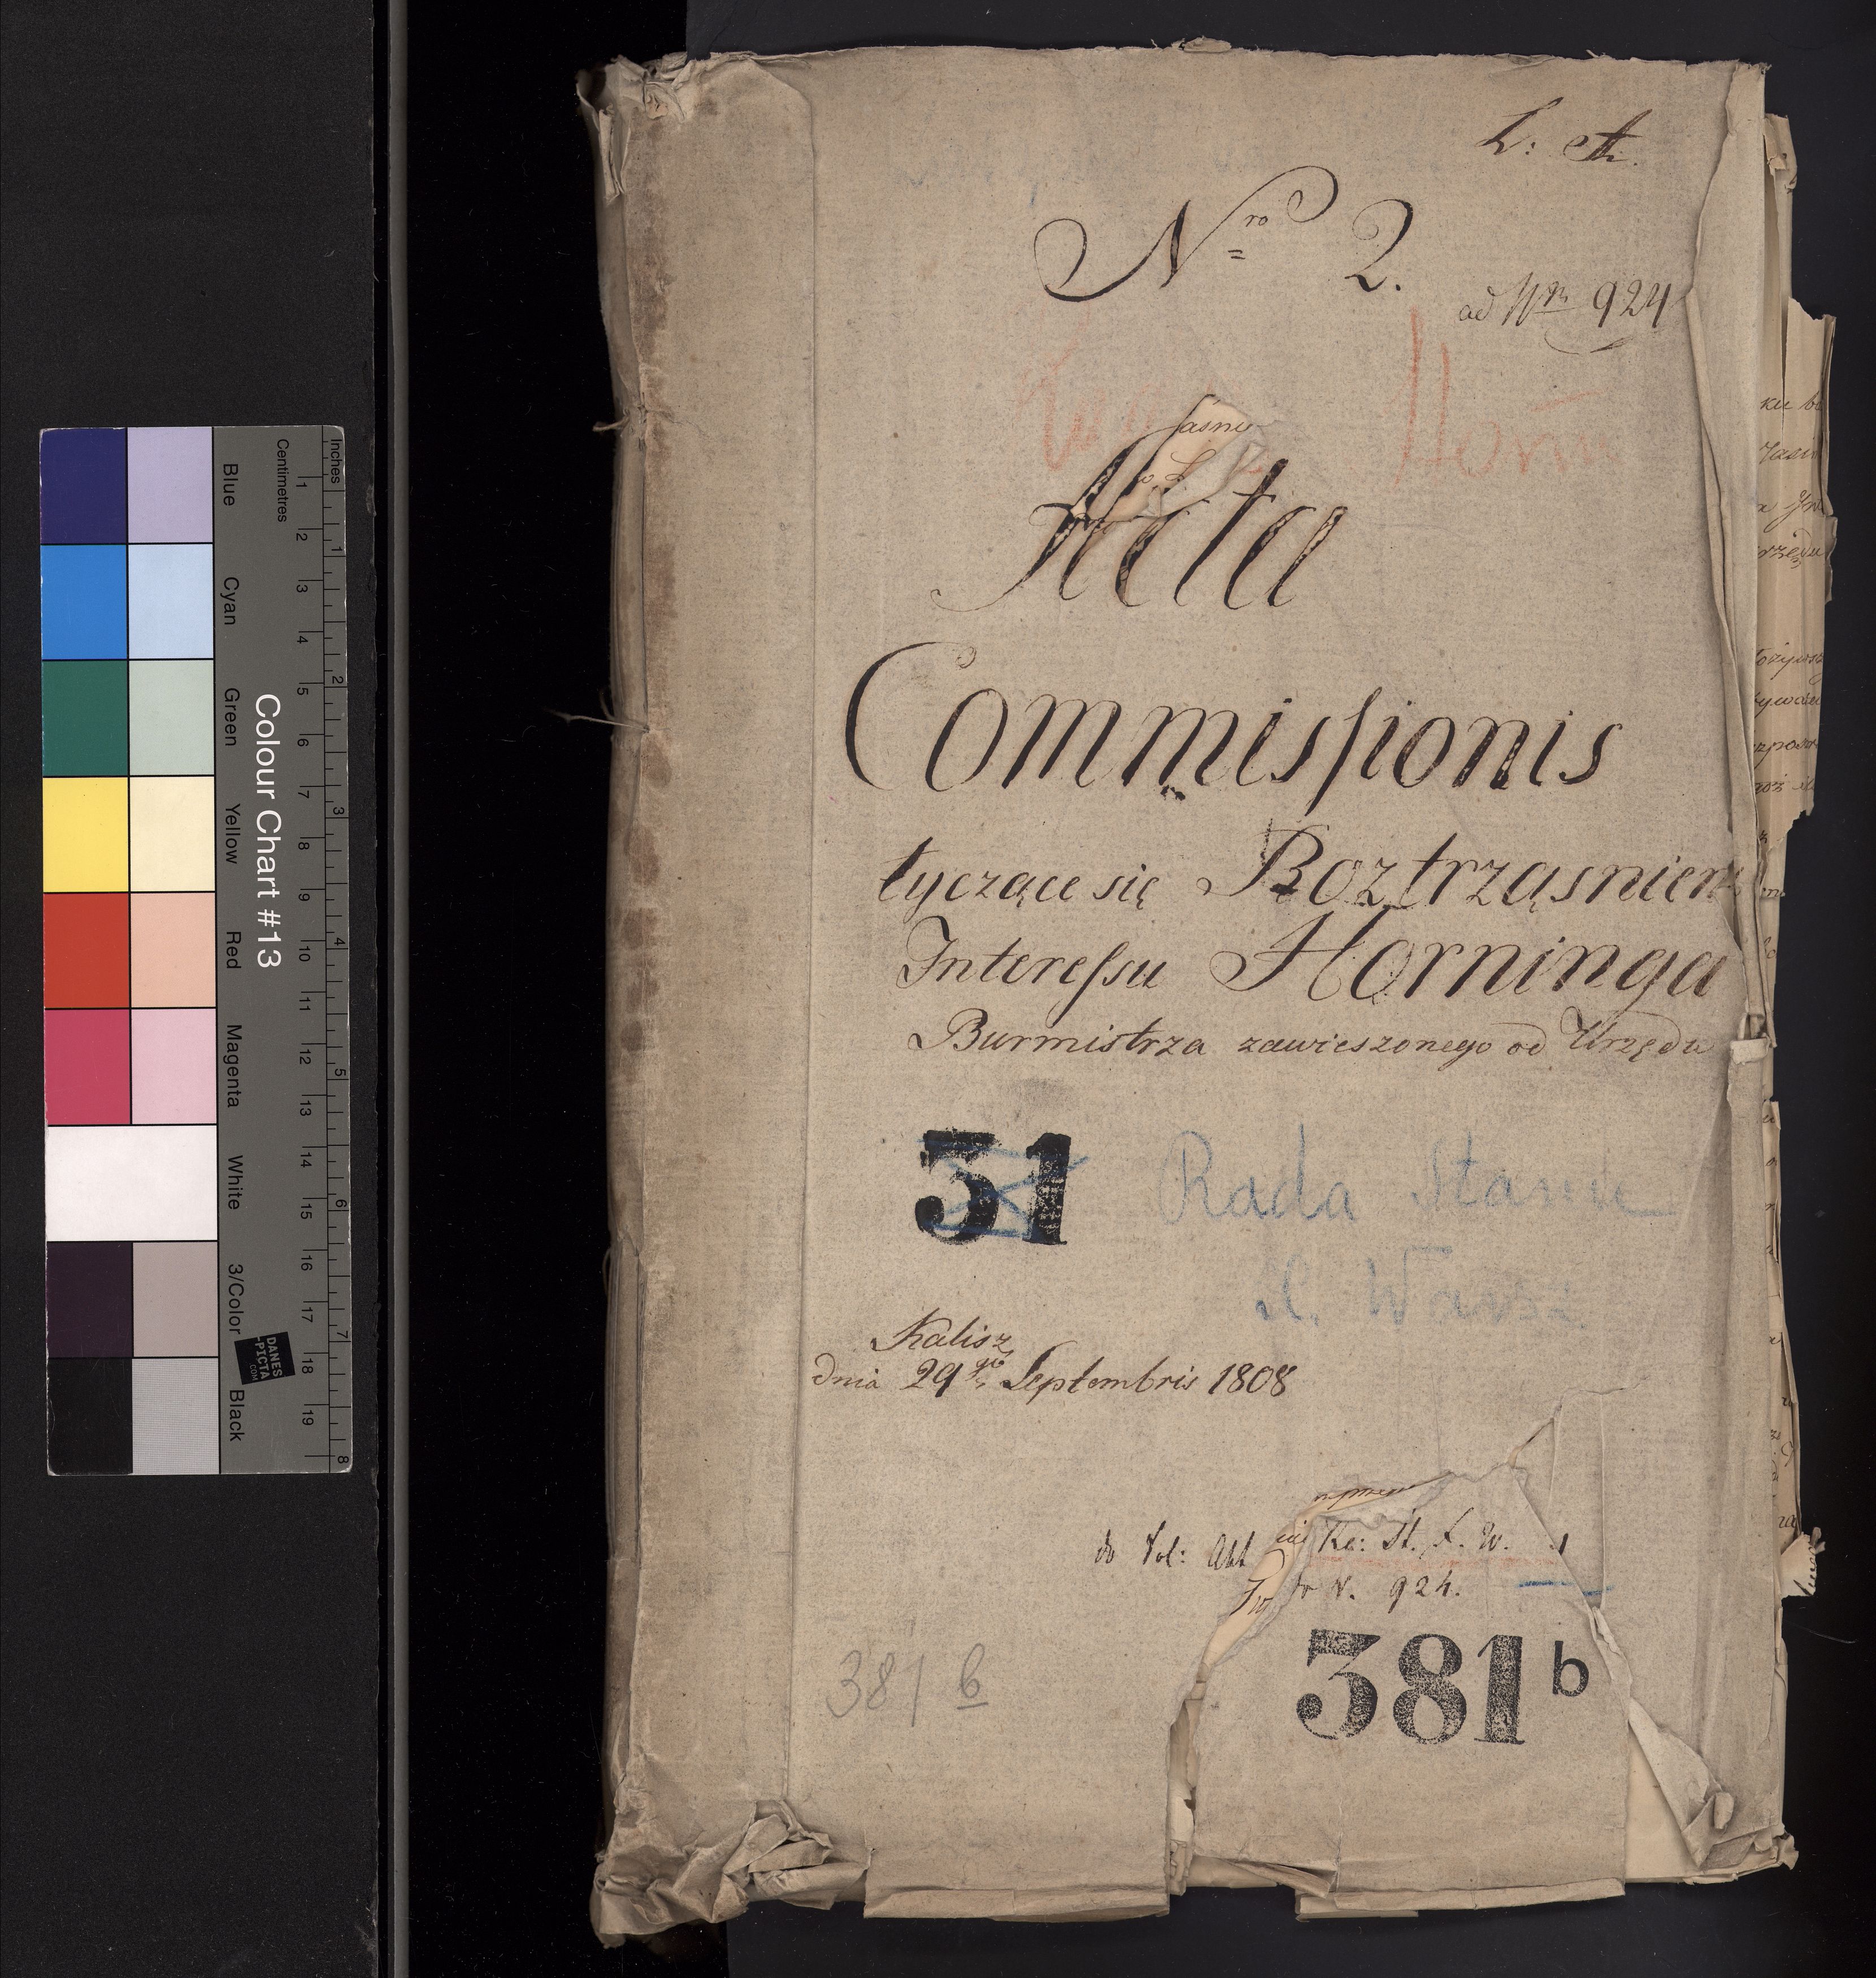 L: A.
Nro 2.
ad Nrm 924
Horn
Acta
Commissionis
tyczące się Roztrząsnien
Interessu Horninga
Burmistrza zawieszonego od Urzędu
31
Rada Stanu
X. Warsz.
Kalisz
dnia 29go Septembris 1808
do Vol: Akt Ra: St. X. W.
N. 924.
381 b
381 b
Colour Chart #13
Blue
Cyan
Green
Yellow
Red
Magenta
White
3/Color
Black
Centimetres
Inches
1 2 3 4 5 6 7 8 9 10 11 12 13 14 15 16 17 18 19
1 2 3 4 5 6 7 8
DANES
-PICTA
.COM